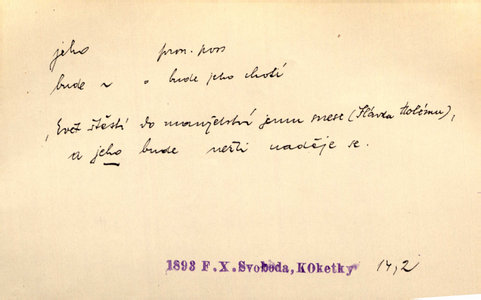 jeho pron. poss
bude ~ o bude jeho chotí
„ štěstí do manželství jemu nese (Slávka Holému),
a jeho bude nežli naděje se.
1893 F.X.Svoboda, KOketky 14,2